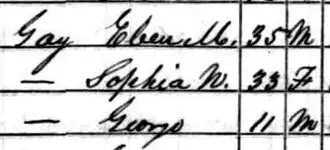 Gay Eben M. 35 M
— Sophia W. 33 F
— George 11 M